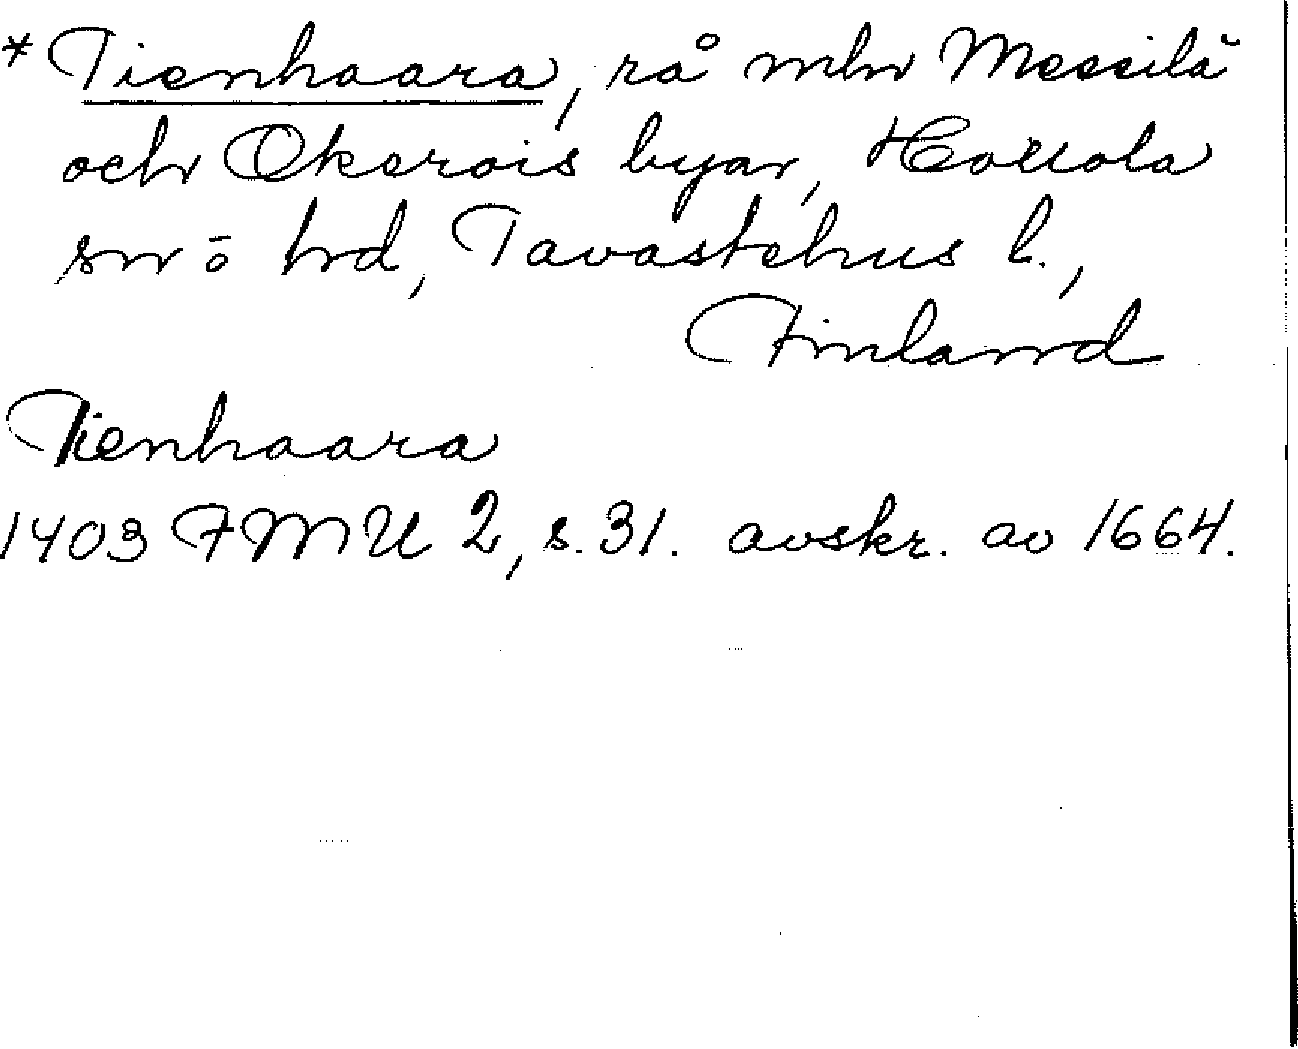 * Tienhaara, rå mln Messilä
och Okerois byar, Hollola
sn ö hd, Tavastehus l.,
Finland
Tienhaara
1403 FMU 2, s. 31. avskr. av 1664.